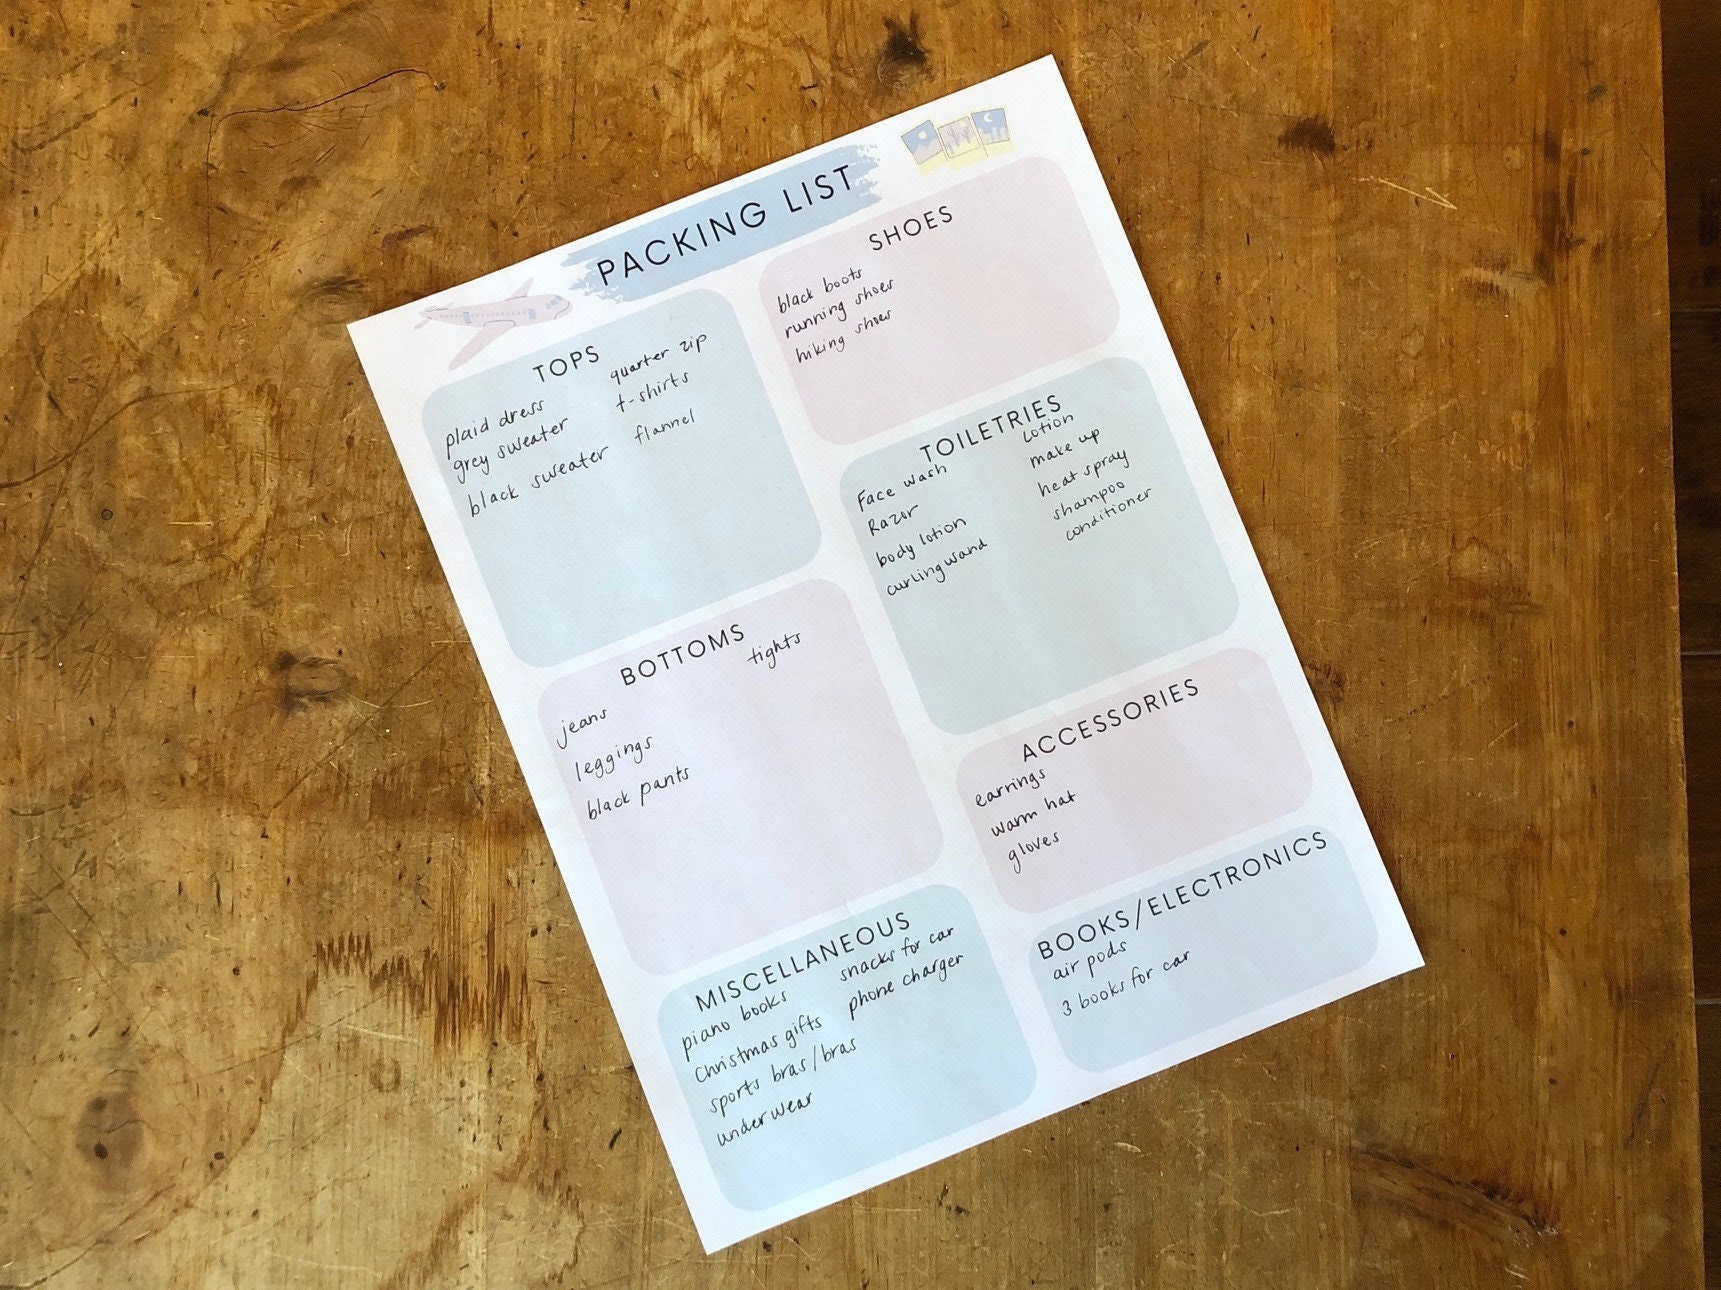 PACKING LIST
TOPS
plaid dress
grey sweater
black sweater
quarter zip
t-shirts
flannel
SHOES
black boots
running shoes
hiking shoes
TOILETRIES
Face wash
Razor
body lotion
curling wand
Lotion
make up
heat spray
shampoo
conditioner
BOTTOMS
jeans
leggings
black pants
tights
ACCESSORIES
earrings
warm hat
gloves
MISCELLANEOUS
piano books
Christmas gifts
sports bras/bras
underwear
snacks for car
phone charger
BOOKS/ELECTRONICS
air pods
3 books for car